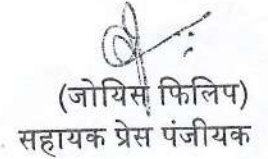 (जोयिस फिलिप)
सहायक प्रेस पंजीयक